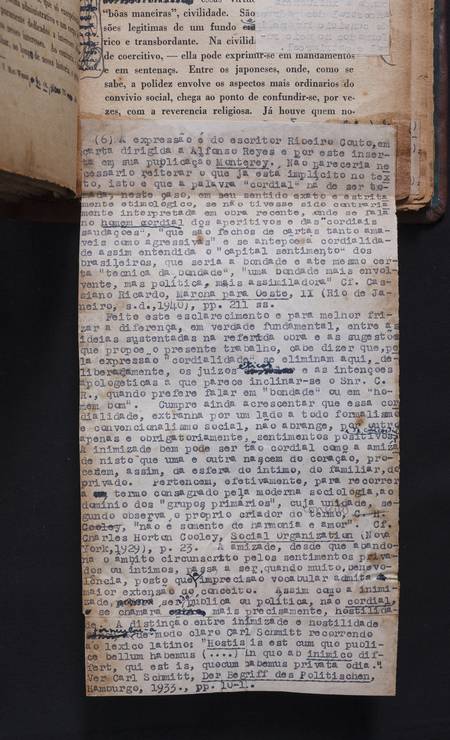 "bôas maneiras", civilidade. São
sões legitimas de um fundo
rico e transbordante. Na civilid
de coercitivo, — ella pode exprimir-se em mandamentos
e em sentenças. Entre os japoneses, onde, como se
sabe, a polidez envolve os aspectos mais ordinarios do
convivio social, chega ao ponto de confundir-se, por ve-
zes, com a reverencia religiosa. Já houve quem no-
(6) A expressão é do escritor Ribeiro Couto, em
carta dirigida a Alfonso Reyes e por este inser-
ta em sua publicação Monterey. Não pareceria ne
cessario reiterar o que já está implicito no tex
to, isto é que a palavra "cordial" há de ser to-
mada, neste caso, em seu sentido exato e estrita
mente etimologico, se não tivesse sido contraria
mente interpretada em obra recente, onde se fala
no homem cordial dos aperitivos e das "cordiais
saudações", "que são fechos de cartas tanto ama-
veis como agressivas" e se antepõe á cordialida-
de assim entendida o "capital sentimento" dos
brasileiros, que seria a bondade e até mesmo cer-
ta "tecnica da bondade", "uma bondade mais envol-
vente, mas politica, mais assimiladora" Cf. Cas-
siano Ricardo, Marcha para Oeste, II (Rio de Ja-
neiro, s.d.,1940), pp. 211 ss.
Feito este esclarecimento e para melhor fri-
zar a diferença, em verdade fundamental, entre as
ideias sustentadas na referida obra e as sugestoes
que propoe o presente trabalho, cabe dizer que, pe
la expressão "cordialidade", se eliminam aqui, de-
liberadamente, os juizos éticos e as intenções
apologeticas a que parece inclinar-se o Snr. C.
R., quando prefere falar em "bondade" ou em "ho-
mem bom". Cumpre ainda acrescentar que essa cor
dialidade, extranha por um lado a todo formalismo
e convencionalismo social, não abrange, por outro
apenas e obrigatoriamente, sentimentos positivos
A inimizade bem pode ser tão cordial como a amiza
de nisto que uma e outra nascem do coração, pro-
cedem, assim, da esfera do intimo, do familiar, do
privado. Pertencem, efetivamente, para recorrer
a termo consagrado pela moderna sociologia, ao
dominio dos "grupos primarios", cuja unidade, se-
gundo observa o proprio criador do termo, C. H.
Cooley, "não é somente de harmonia e amor". Cf.
Charles Horton Cooley, Social Organization (Nova
York,1929), p. 23. A amizade, desde que abando-
na o ambito circunscrito pelos sentimentos priva-
dos ou intimos, passa a ser, quando muito, benevo-
lência, posto que a imprecisão vocabular admita
maior extensão do conceito. Assim como a inimi-
zade, sendo publica ou politica, não cordial,
se chamará mais precisamente, hostilida
de. A distinção entre inimizade e hostilidade
de modo claro Carl Schmitt recorrendo
ao lexico latino: "Hostis is est cum quo publi-
ce bellum habemus (....) in quo ab inimico dif-
fert, qui est is, quocum habemus privata odia."
Ver Carl Schmitt, Der Begriff des Politischen,
Hamburgo, 1933., pp. 10-11.